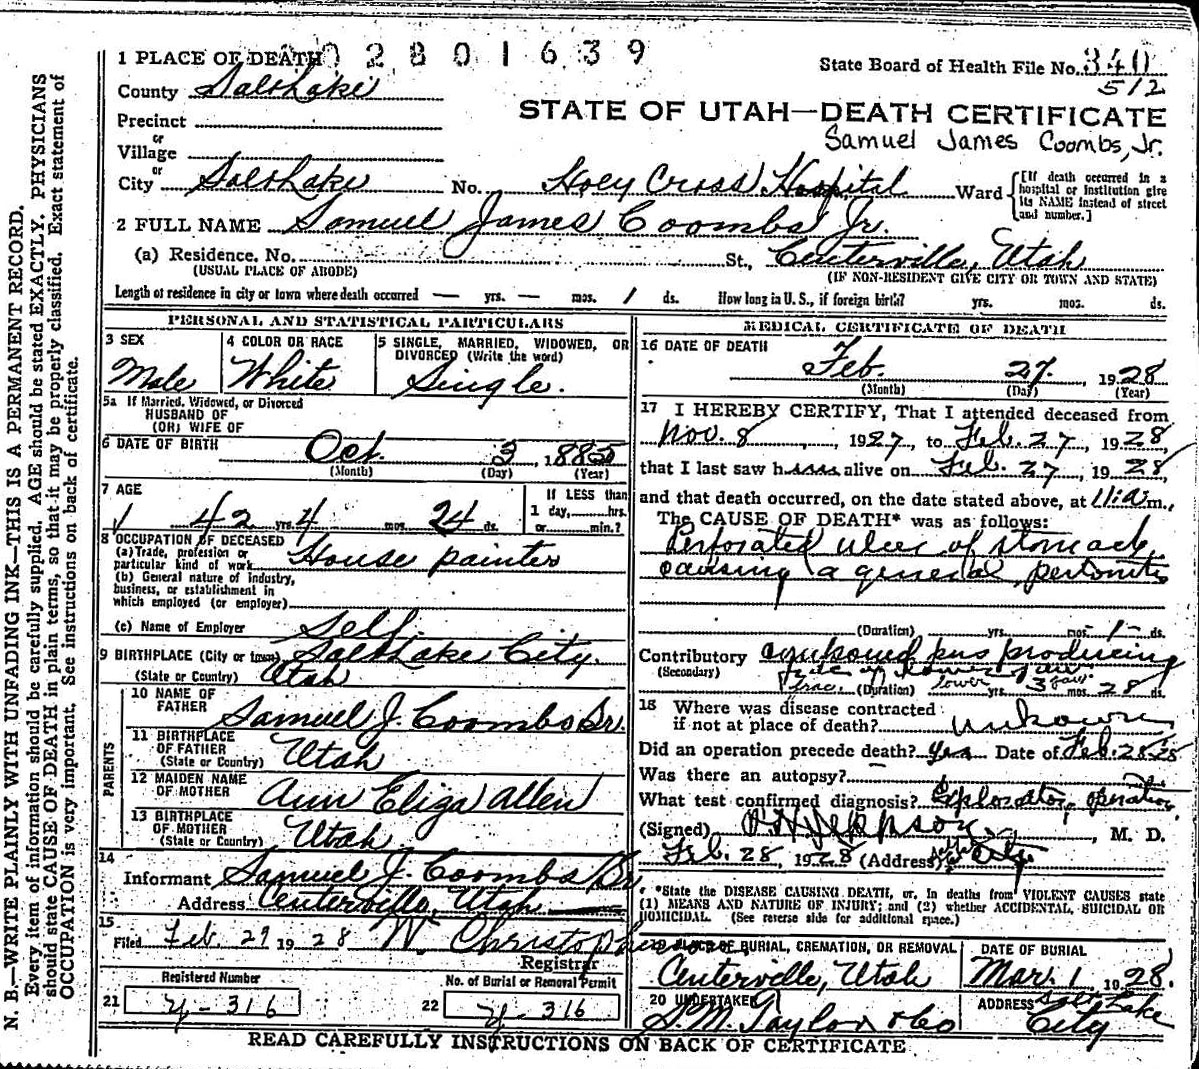 02801639
1 PLACE OF DEATH
State Board of Health File No. 340
512
County Salt Lake
STATE OF UTAH—DEATH CERTIFICATE
Samuel James Coombs, Jr.
Precinct
or
Village
or
City Salt Lake No. Holy Cross Hospital Ward
[If death occurred in a
hospital or institution give
its NAME instead of street
and number.]
2 FULL NAME Samuel James Coombs Jr.
(a) Residence. No. St., Centerville, Utah
(USUAL PLACE OF ABODE) (IF NON-RESIDENT GIVE CITY OR TOWN AND STATE)
Length of residence in city or town where death occurred — yrs. — mos. 1 ds. How long in U. S., if foreign birth? yrs. mos. ds.
PERSONAL AND STATISTICAL PARTICULARS
3 SEX
Male
4 COLOR OR RACE
White
5 SINGLE, MARRIED, WIDOWED, OR
DIVORCED (Write the word)
Single.
5a If Married, Widowed, or Divorced
HUSBAND OF
(OR) WIFE OF
6 DATE OF BIRTH Oct. 3, 1885
(Month) (Day) (Year)
7 AGE
42 yrs. 4 mos. 24 ds.
If LESS than
1 day, hrs.
or min.?
8 OCCUPATION OF DECEASED
(a) Trade, profession or
particular kind of work House painter
(b) General nature of industry,
business, or establishment in
which employed (or employer)
(c) Name of Employer Self.
9 BIRTHPLACE (City or town) Salt Lake City.
(State or Country) Utah
PARENTS
10 NAME OF
FATHER Samuel J. Coombs Sr.
11 BIRTHPLACE
OF FATHER
(State or Country) Utah
12 MAIDEN NAME
OF MOTHER Ann Eliza Allen
13 BIRTHPLACE
OF MOTHER
(State or Country) Utah
14
Informant Samuel J. Coombs Sr
Address Centerville, Utah
15
Filed Feb. 29 1928 W. Christopherson
Registrar
Registered Number
21 y-316
No. of Burial or Removal Permit
22 y-316
MEDICAL CERTIFICATE OF DEATH
16 DATE OF DEATH
Feb. 27, 1928
(Month) (Day) (Year)
17 I HEREBY CERTIFY, That I attended deceased from
Nov. 8, 1927, to Feb. 27, 1928,
that I last saw h alive on Feb. 27, 1928,
and that death occurred, on the date stated above, at 11 a m.,
The CAUSE OF DEATH* was as follows:
Perforated ulcer of stomach,
causing a general peritonitis
(Duration) yrs. mos. -1- ds.
Contributory unknown pus producing
(Secondary) lower jaw
frac. (Duration) lower yrs. 3 jaw mos. 28 ds.
18 Where was disease contracted
if not at place of death? unknown
Did an operation precede death? yes Date of Feb. 28-28
Was there an autopsy?
What test confirmed diagnosis? Exploratory operation
(Signed) Jeppson, M. D.
Feb. 28, 1928 (Address) City.
*State the DISEASE CAUSING DEATH, or, in deaths from VIOLENT CAUSES state
(1) MEANS AND NATURE OF INJURY; and (2) whether ACCIDENTAL, SUICIDAL OR
HOMICIDAL. (See reverse side for additional space.)
PLACE OF BURIAL, CREMATION, OR REMOVAL
Centerville, Utah
DATE OF BURIAL
Mar. 1, 1928.
20 UNDERTAKER
S. M. Taylor & Co
ADDRESS Salt Lake
City
READ CAREFULLY INSTRUCTIONS ON BACK OF CERTIFICATE
N. B.—WRITE PLAINLY WITH UNFADING INK—THIS IS A PERMANENT RECORD.
Every item of information should be carefully supplied. AGE should be stated EXACTLY. PHYSICIANS
should state CAUSE OF DEATH in plain terms, so that it may be properly classified. Exact statement of
OCCUPATION is very important. See instructions on back of certificate.